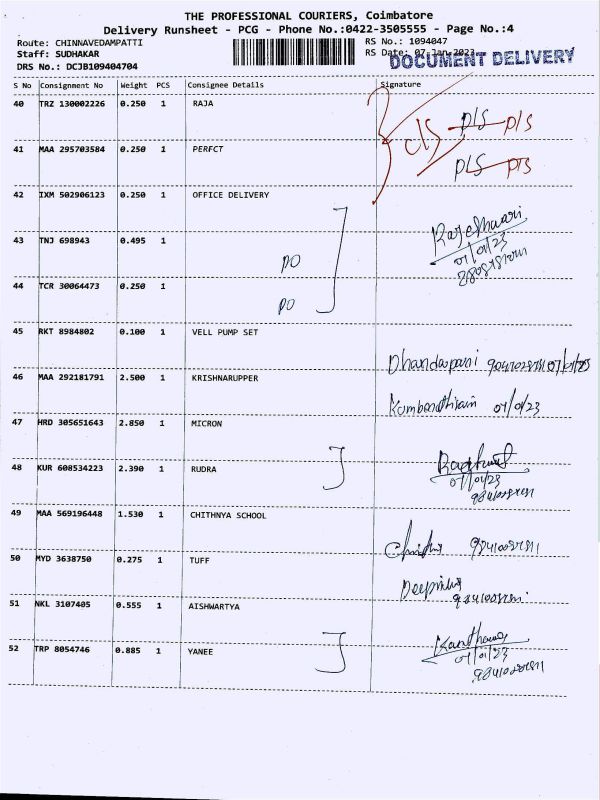 THE PROFESSIONAL COURIERS, Coimbatore
Delivery Runsheet - PCG - Phone No.:0422-3505555 - Page No.:4
Route: CHINNAVEDAMPATTI
RS No.: 1094047
Staff: SUDHAKAR
RS Date: 07-Jan-2023
DRS No.: DCJB109404704
DOCUMENT DELIVERY
S No Consignment No Weight PCS Consignee Details Signature
40 TRZ 130002226 0.250 1 RAJA
c/s P/S P/S
41 MAA 295703584 0.250 1 PERFCT
P/S P/S
42 IXM 502906123 0.250 1 OFFICE DELIVERY
Rajeshwari
07/01/23
43 TNJ 698943 0.495 1
PO
44 TCR 30064473 0.250 1
PO
45 RKT 8984802 0.100 1 VELL PUMP SET
Dhandapani 07/01/23
46 MAA 292181791 2.500 1 KRISHNARUPPER
07/01/23
47 HRD 305651643 2.850 1 MICRON
48 KUR 608534223 2.390 1 RUDRA
07/01/23
49 MAA 569196448 1.530 1 CHITHNYA SCHOOL
50 MYD 3638750 0.275 1 TUFF
51 NKL 3107405 0.555 1 AISHWARTYA
52 TRP 8054746 0.885 1 YANEE
07/01/23